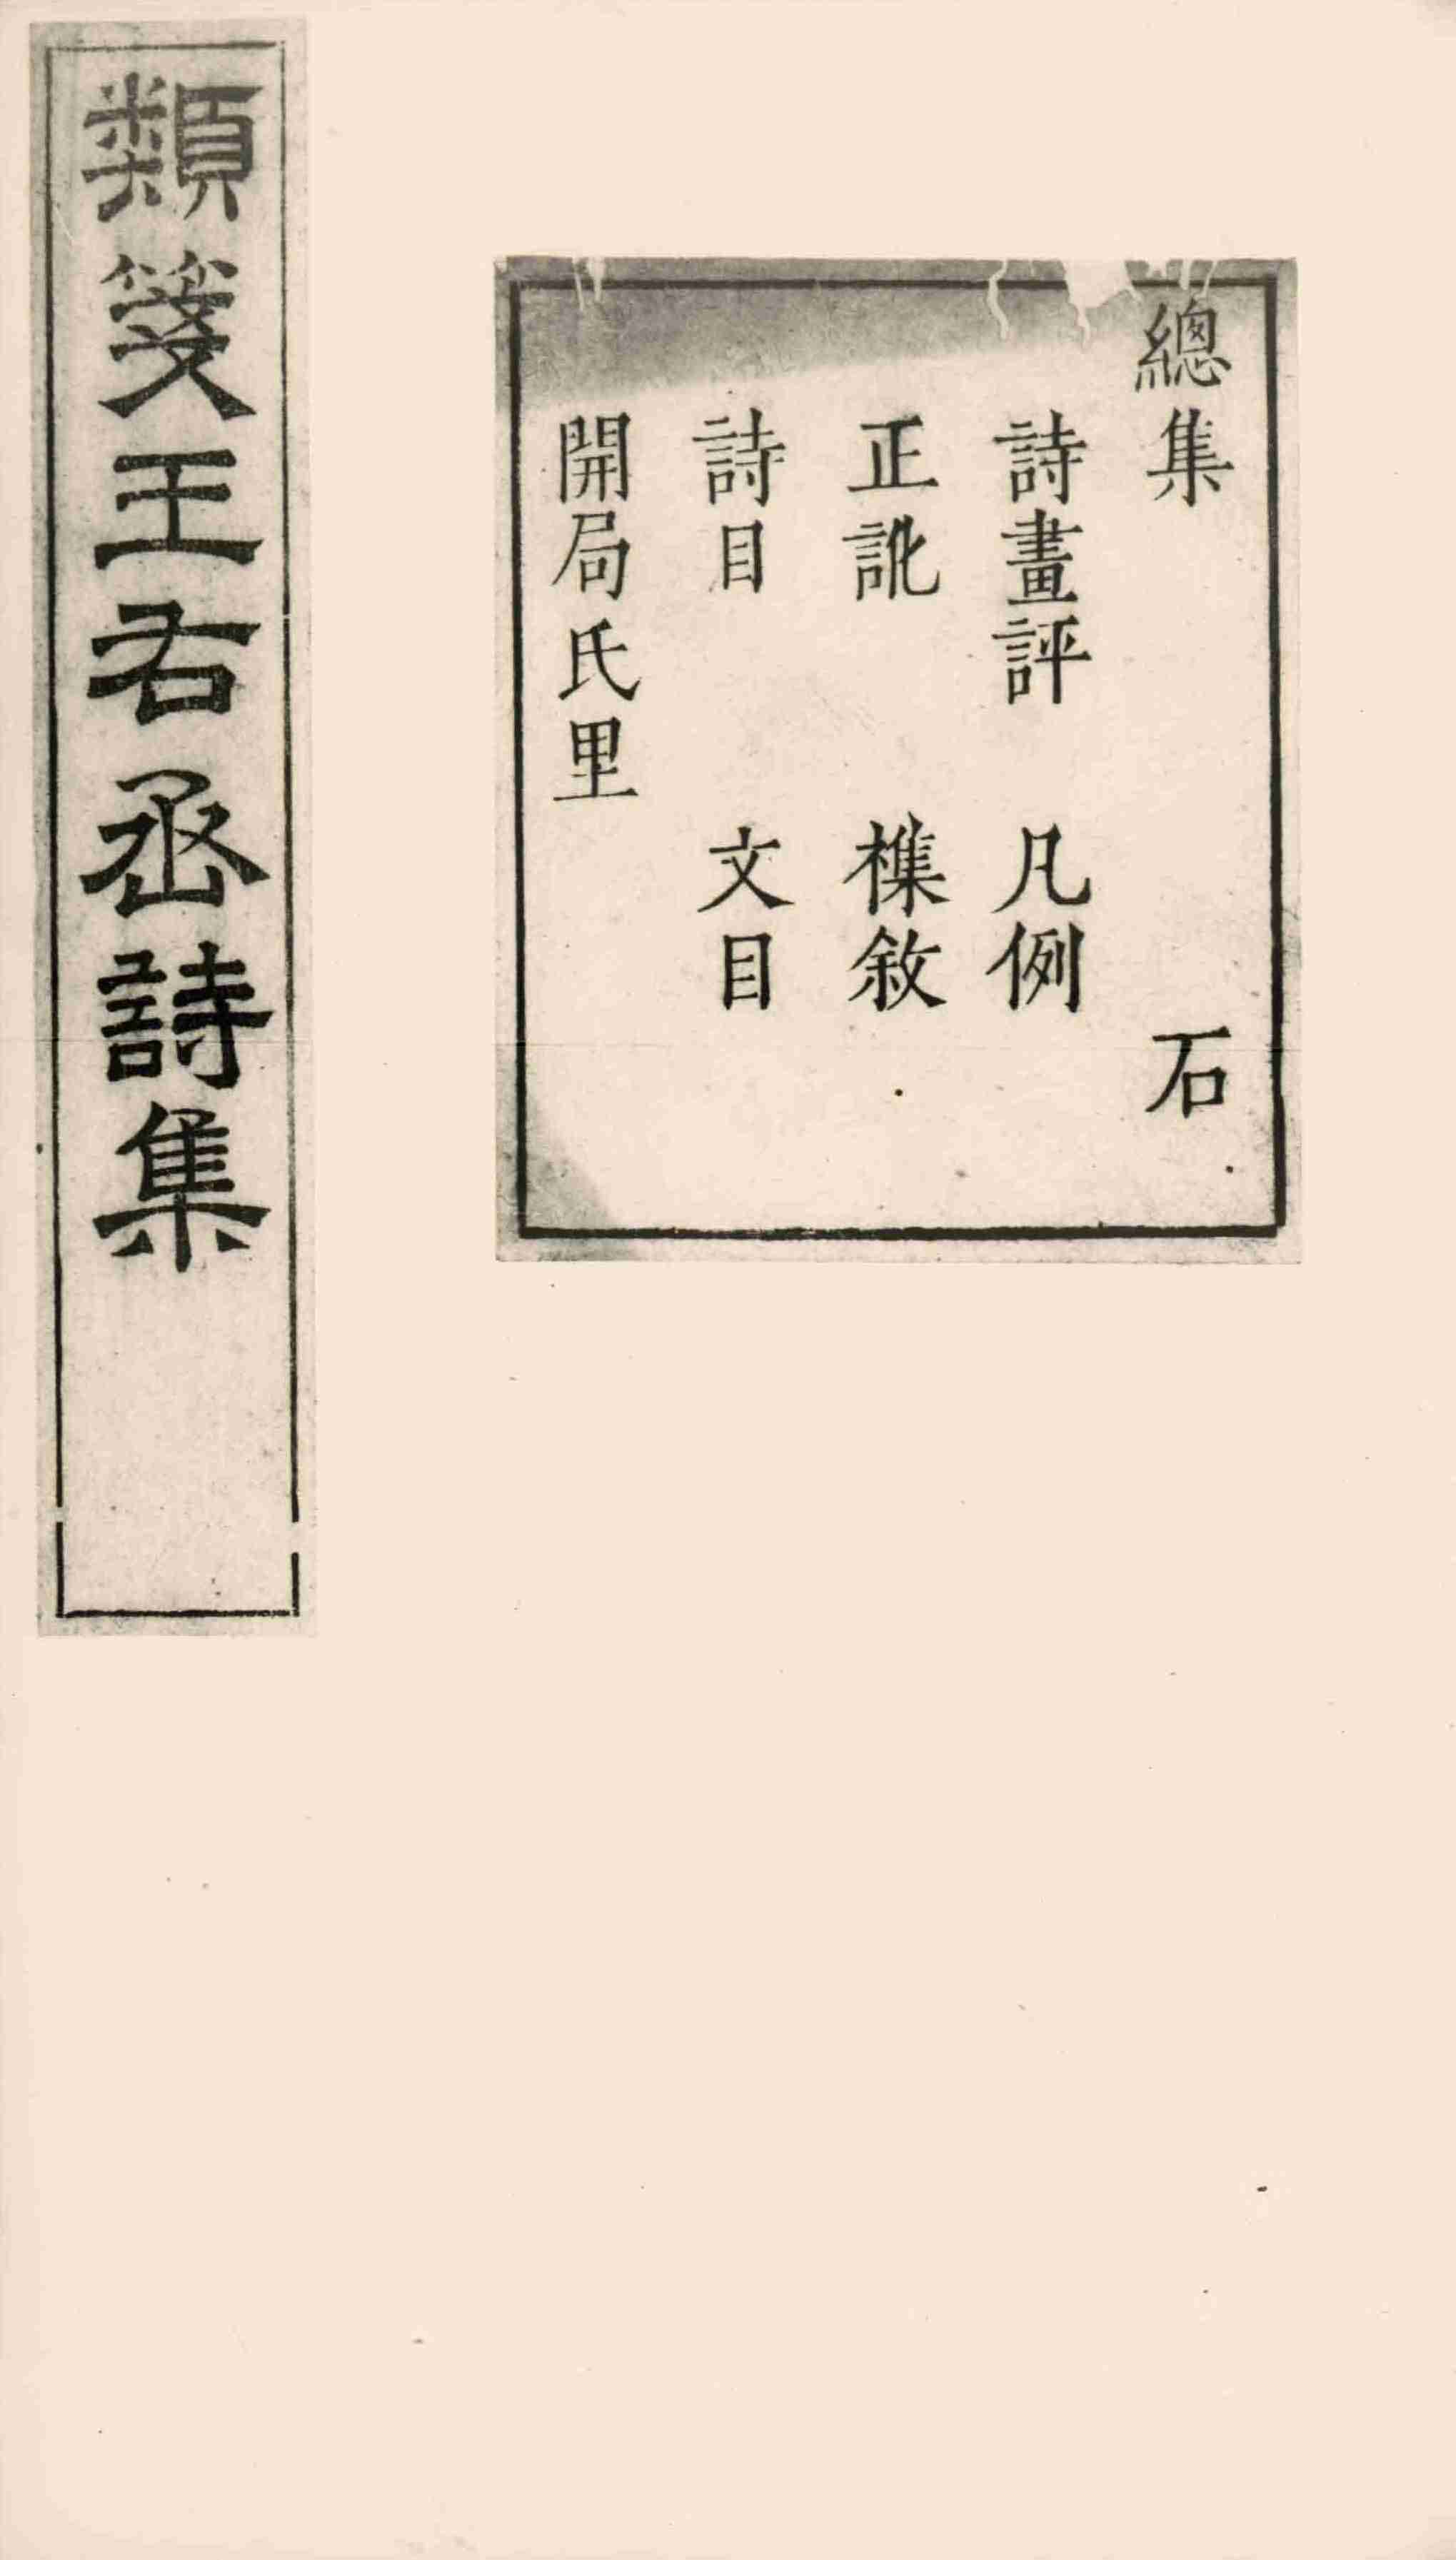 類箋王右丞詩集
總集 石
詩畫評 凡例
正訛 集敘
詩目 文目
開局氏里